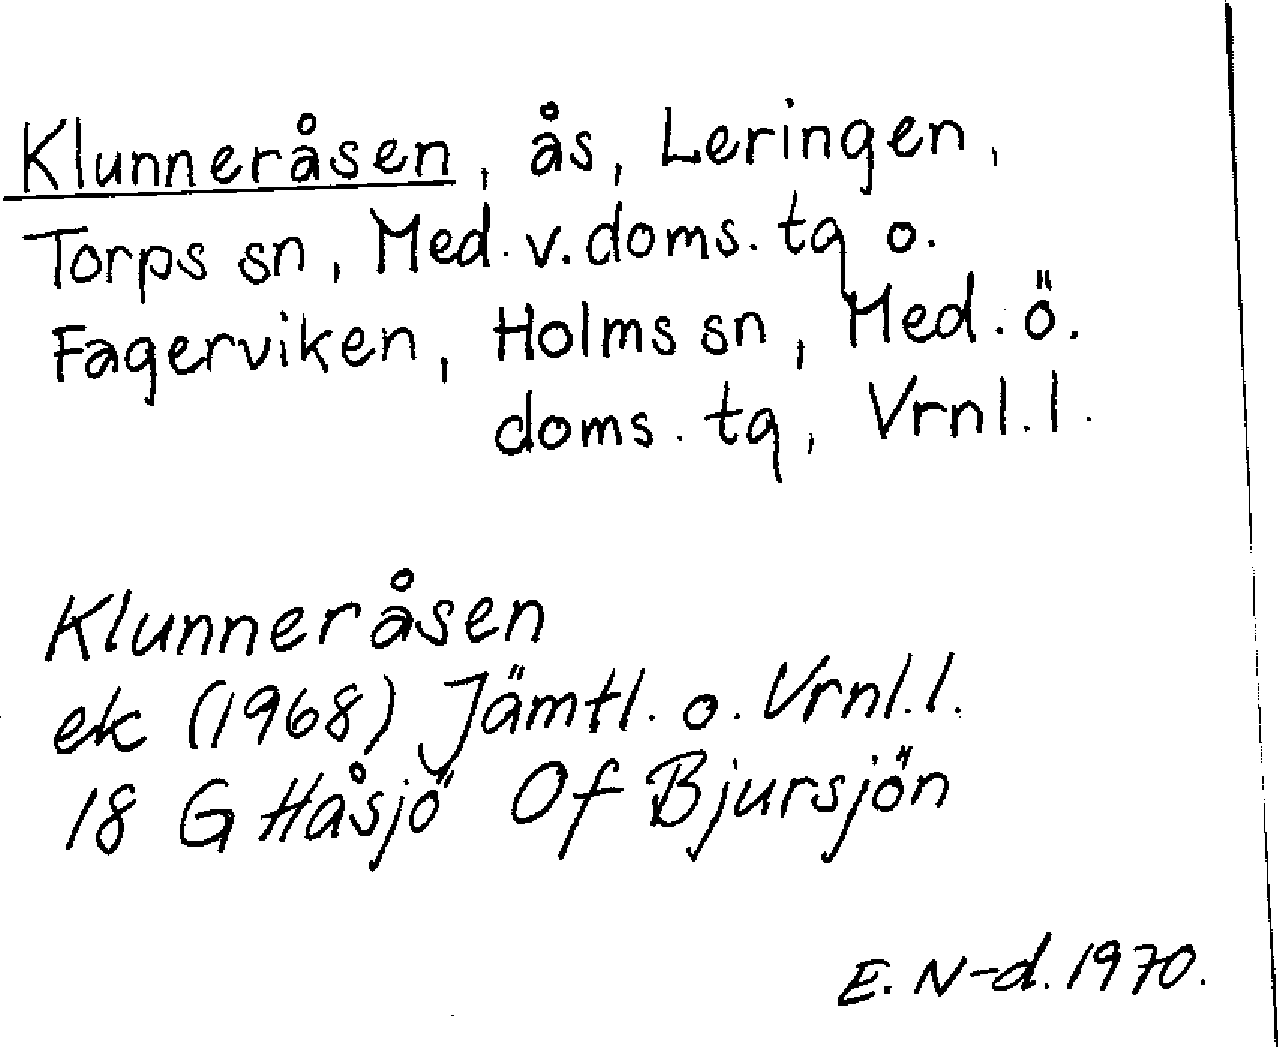 Klunneråsen, ås, Leringen,
Torps sn, Med. v. doms. tg o.
Fagerviken, Holms sn, Med. ö.
doms. tg, Vrnl. l.
Klunneråsen
ek (1968) Jämtl. o. Vrnl. l.
18 G Håsjö Of Bjursjön
E. N-d. 1970.